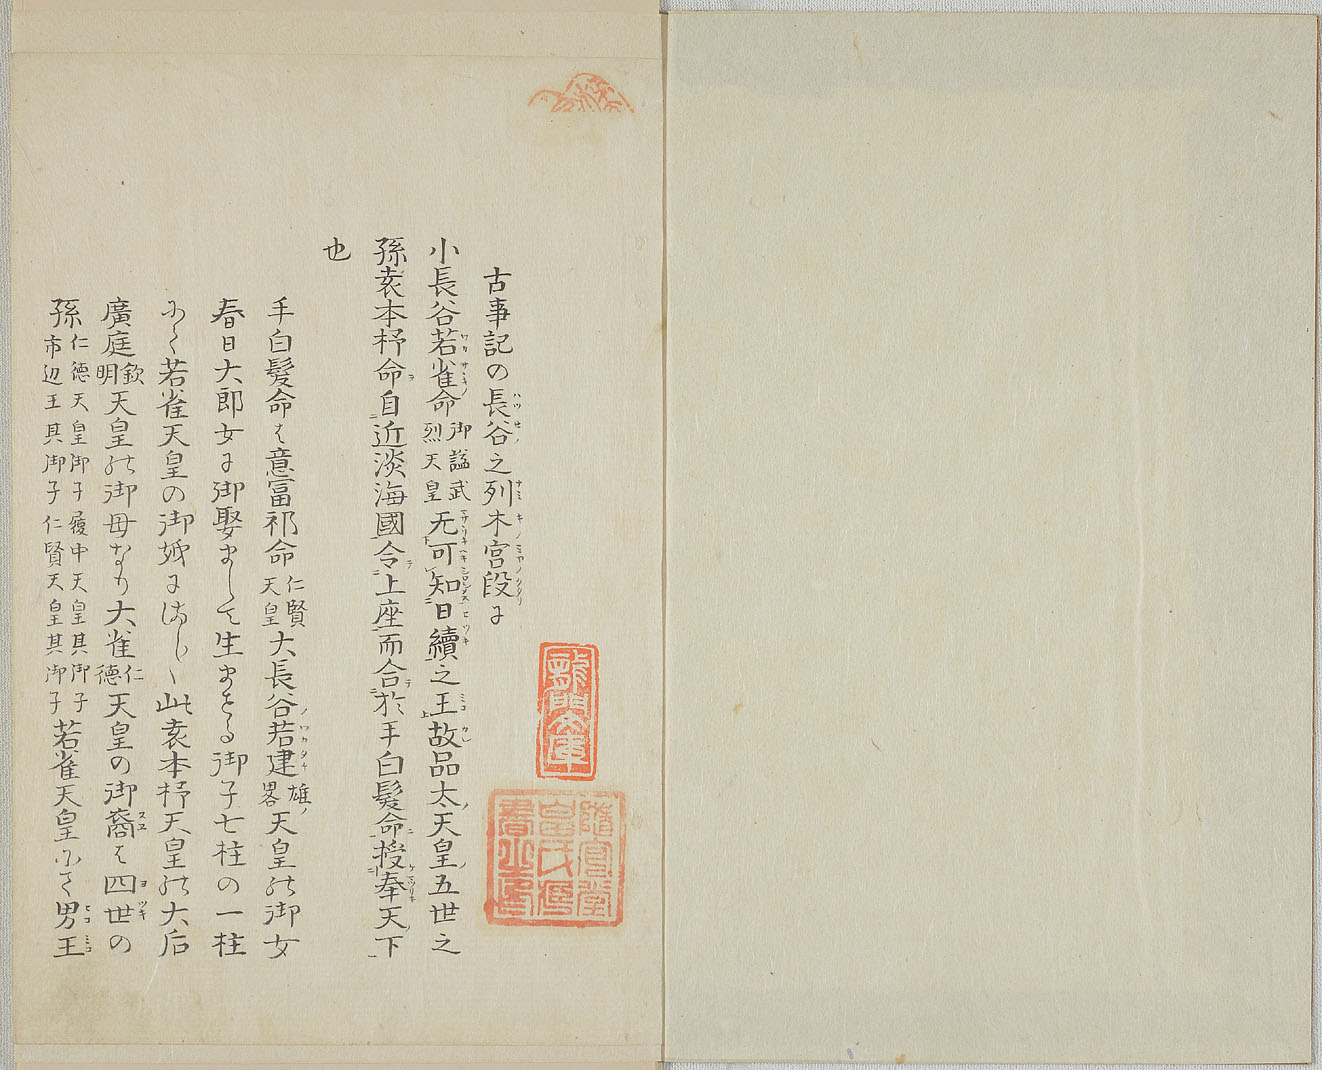 古事記の長谷之列木宮段に
小長谷若雀命御謚武烈天皇无可知日續之王故品太天皇五世之
孫袁本杼命自近淡海國令上座而合於手白髪命授奉天下
也
手白髪命は意富祁命仁賢天皇大長谷若建雄畧天皇の御女
春日大郎女に御娶まして生ませる御子七柱の一柱
にて若雀天皇の御姊にましく此袁本杼天皇の大后
廣庭欽明天皇の御母なり大雀仁德天皇の御裔は四世の
孫仁德天皇御子履中天皇其御子市辺王其御子仁賢天皇其御子若雀天皇にて男王